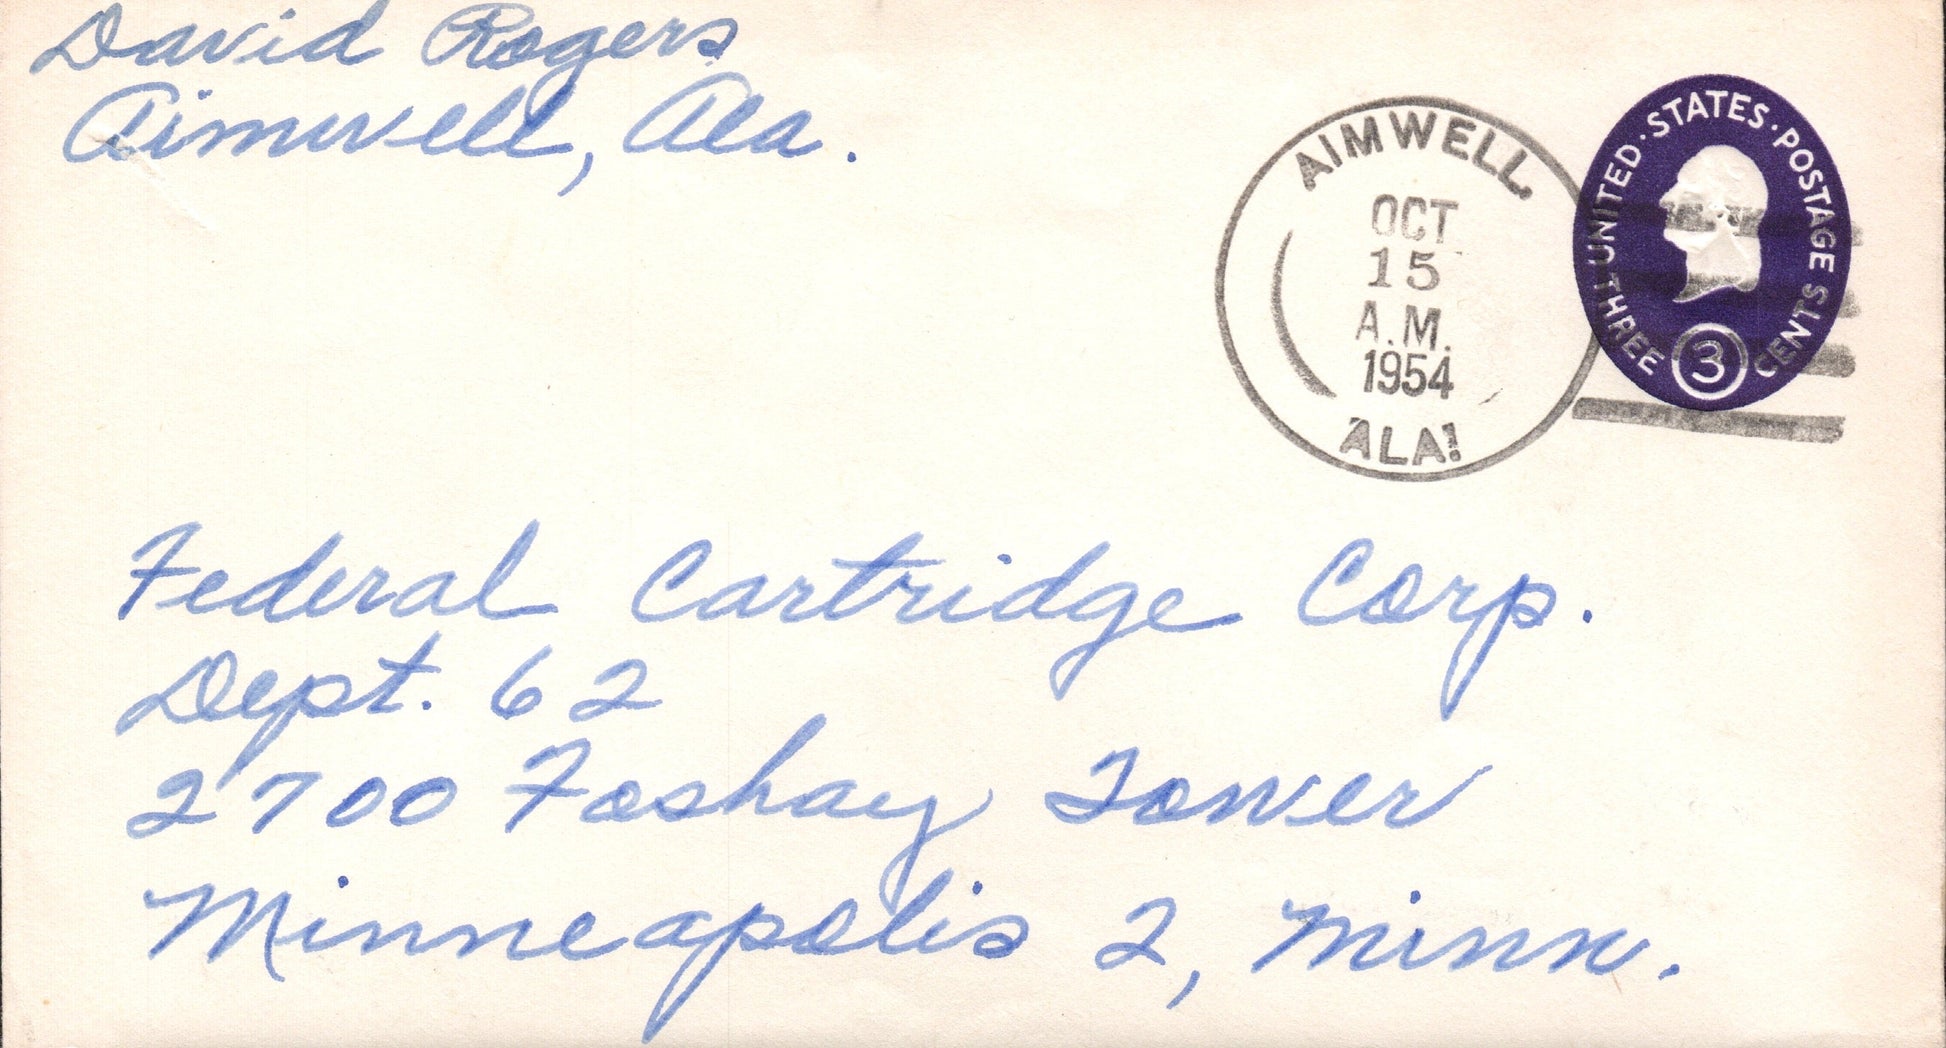 David Rogers
Aimwell, Ala.
AIMWELL
OCT
15
A.M.
1954
ALA.
UNITED · STATES · POSTAGE
THREE 3 CENTS
Federal Cartridge Corp.
Dept. 62
2700 Foshay Tower
Minneapolis 2, Minn.